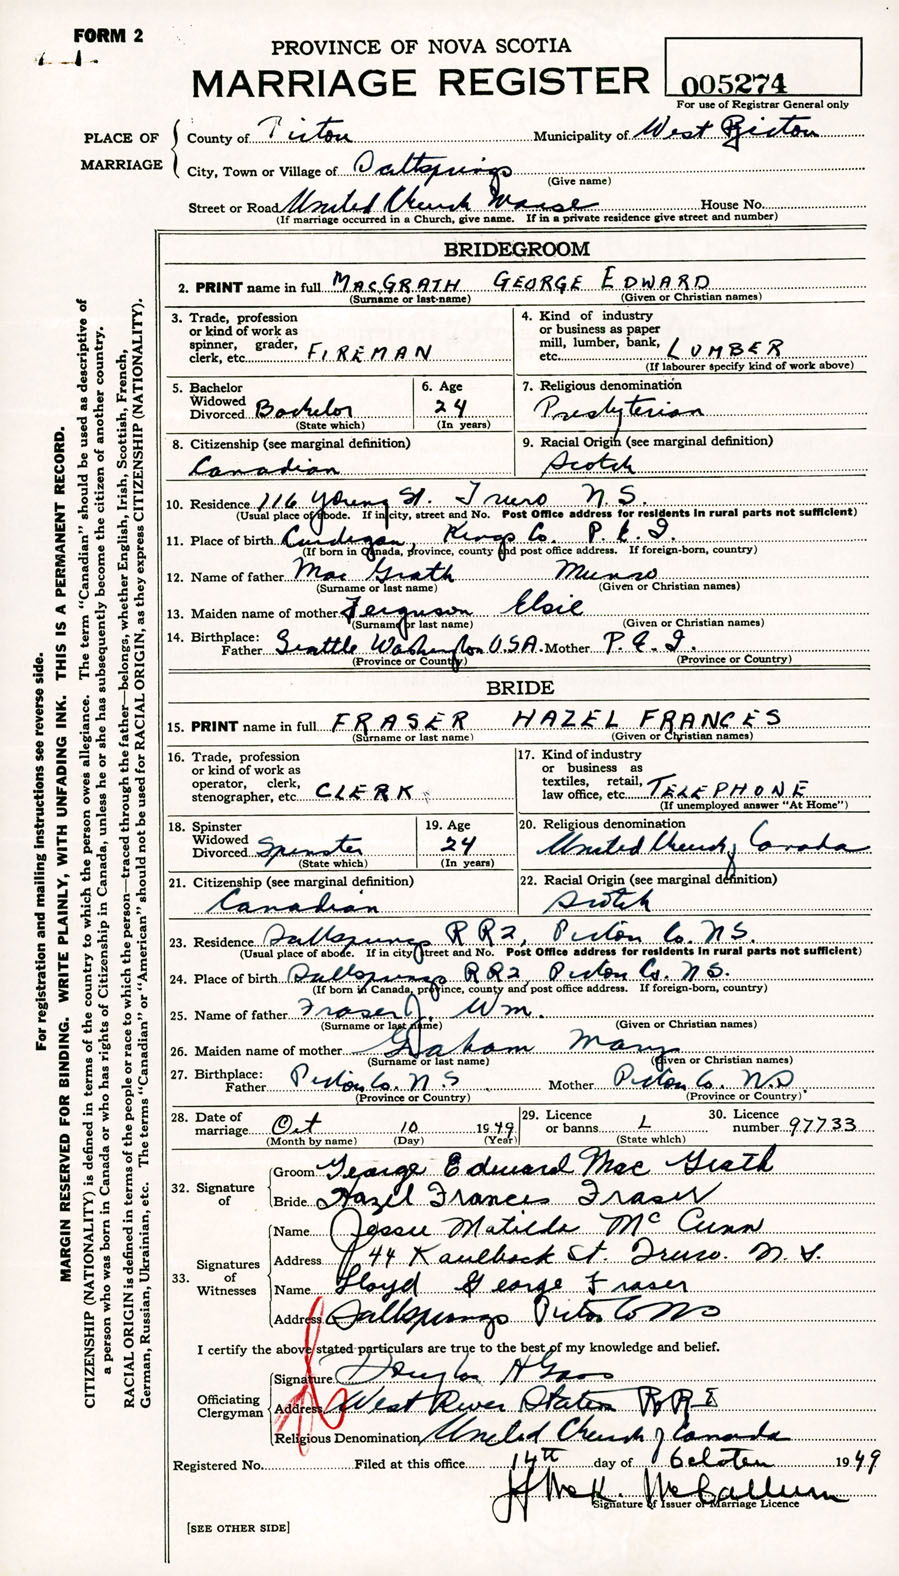 FORM 2
PROVINCE OF NOVA SCOTIA
MARRIAGE REGISTER
005274
For use of Registrar General only
PLACE OF MARRIAGE
County of Pictou Municipality of West Pictou
City, Town or Village of Saltsprings
(Give name)
Street or Road United Church Manse House No.
(If marriage occurred in a Church, give name. If in a private residence give street and number)
BRIDEGROOM
2. PRINT name in full MACGRATH GEORGE EDWARD
(Surname or last-name) (Given or Christian names)
3. Trade, profession or kind of work as spinner, grader, clerk, etc. FIREMAN
4. Kind of industry or business as paper mill, lumber, bank, etc. LUMBER
(If labourer specify kind of work above)
5. Bachelor Widowed Divorced Bachelor
(State which)
6. Age 24
(In years)
7. Religious denomination
Presbyterian
8. Citizenship (see marginal definition)
Canadian
9. Racial Origin (see marginal definition)
Scotch
10. Residence 116 Young St. Truro N.S.
(Usual place of abode. If in city, street and No. Post Office address for residents in rural parts not sufficient)
11. Place of birth Cardigan, Kings Co. P.E.I.
(If born in Canada, province, county and post office address. If foreign-born, country)
12. Name of father MacGrath Munro
(Surname or last name) (Given or Christian names)
13. Maiden name of mother Ferguson Elsie
(Surname or last name) (Given or Christian names)
14. Birthplace: Father Seattle Washington U.S.A. Mother P.E.I.
(Province or Country) (Province or Country)
BRIDE
15. PRINT name in full FRASER HAZEL FRANCES
(Surname or last name) (Given or Christian names)
16. Trade, profession or kind of work as operator, clerk, stenographer, etc. CLERK
17. Kind of industry or business as textiles, retail, law office, etc. TELEPHONE
(If unemployed answer "At Home")
18. Spinster Widowed Divorced Spinster
(State which)
19. Age 24
(In years)
20. Religious denomination
United Church of Canada
21. Citizenship (see marginal definition)
Canadian
22. Racial Origin (see marginal definition)
Scotch
23. Residence Saltsprings RR2, Pictou Co. N.S.
(Usual place of abode. If in city street and No. Post Office address for residents in rural parts not sufficient)
24. Place of birth Saltsprings RR2, Pictou Co. N.S.
(If born in Canada, province, county and post office address. If foreign-born, country)
25. Name of father Fraser J. Wm.
(Surname or last name) (Given or Christian names)
26. Maiden name of mother Graham Mary
(Surname or last name) (Given or Christian names)
27. Birthplace: Father Pictou Co. N.S. Mother Pictou Co. N.S.
(Province or Country) (Province or Country)
28. Date of marriage Oct 10 1949
(Month by name) (Day) (Year)
29. Licence or banns L
(State which)
30. Licence number 97733
32. Signature of
Groom George Edward MacGrath
Bride Hazel Frances Fraser
33. Signatures of Witnesses
Name Jessie Matilda McCunn
Address 44 Kaulback St. Truro. N.S.
Name Lloyd George Fraser
Address Saltsprings Pictou Co NS
I certify the above stated particulars are true to the best of my knowledge and belief.
Officiating Clergyman
Signature Douglas H
Address West River Station RR 1
Religious Denomination United Church of Canada
Registered No. Filed at this office 14th day of October 1949
McCallum
Signature of Issuer of Marriage Licence
[SEE OTHER SIDE]
For registration and mailing instructions see reverse side.
MARGIN RESERVED FOR BINDING. WRITE PLAINLY, WITH UNFADING INK. THIS IS A PERMANENT RECORD.
CITIZENSHIP (NATIONALITY) is defined in terms of the country to which the person owes allegiance. The term "Canadian" should be used as descriptive of
a person who was born in Canada or who has rights of Citizenship in Canada, unless he or she has subsequently become the citizen of another country.
RACIAL ORIGIN is defined in terms of the people or race to which the person—traced through the father—belongs, whether English, Irish, Scottish, French,
German, Russian, Ukrainian, etc. The terms "Canadian" or "American" should not be used for RACIAL ORIGIN, as they express CITIZENSHIP (NATIONALITY).